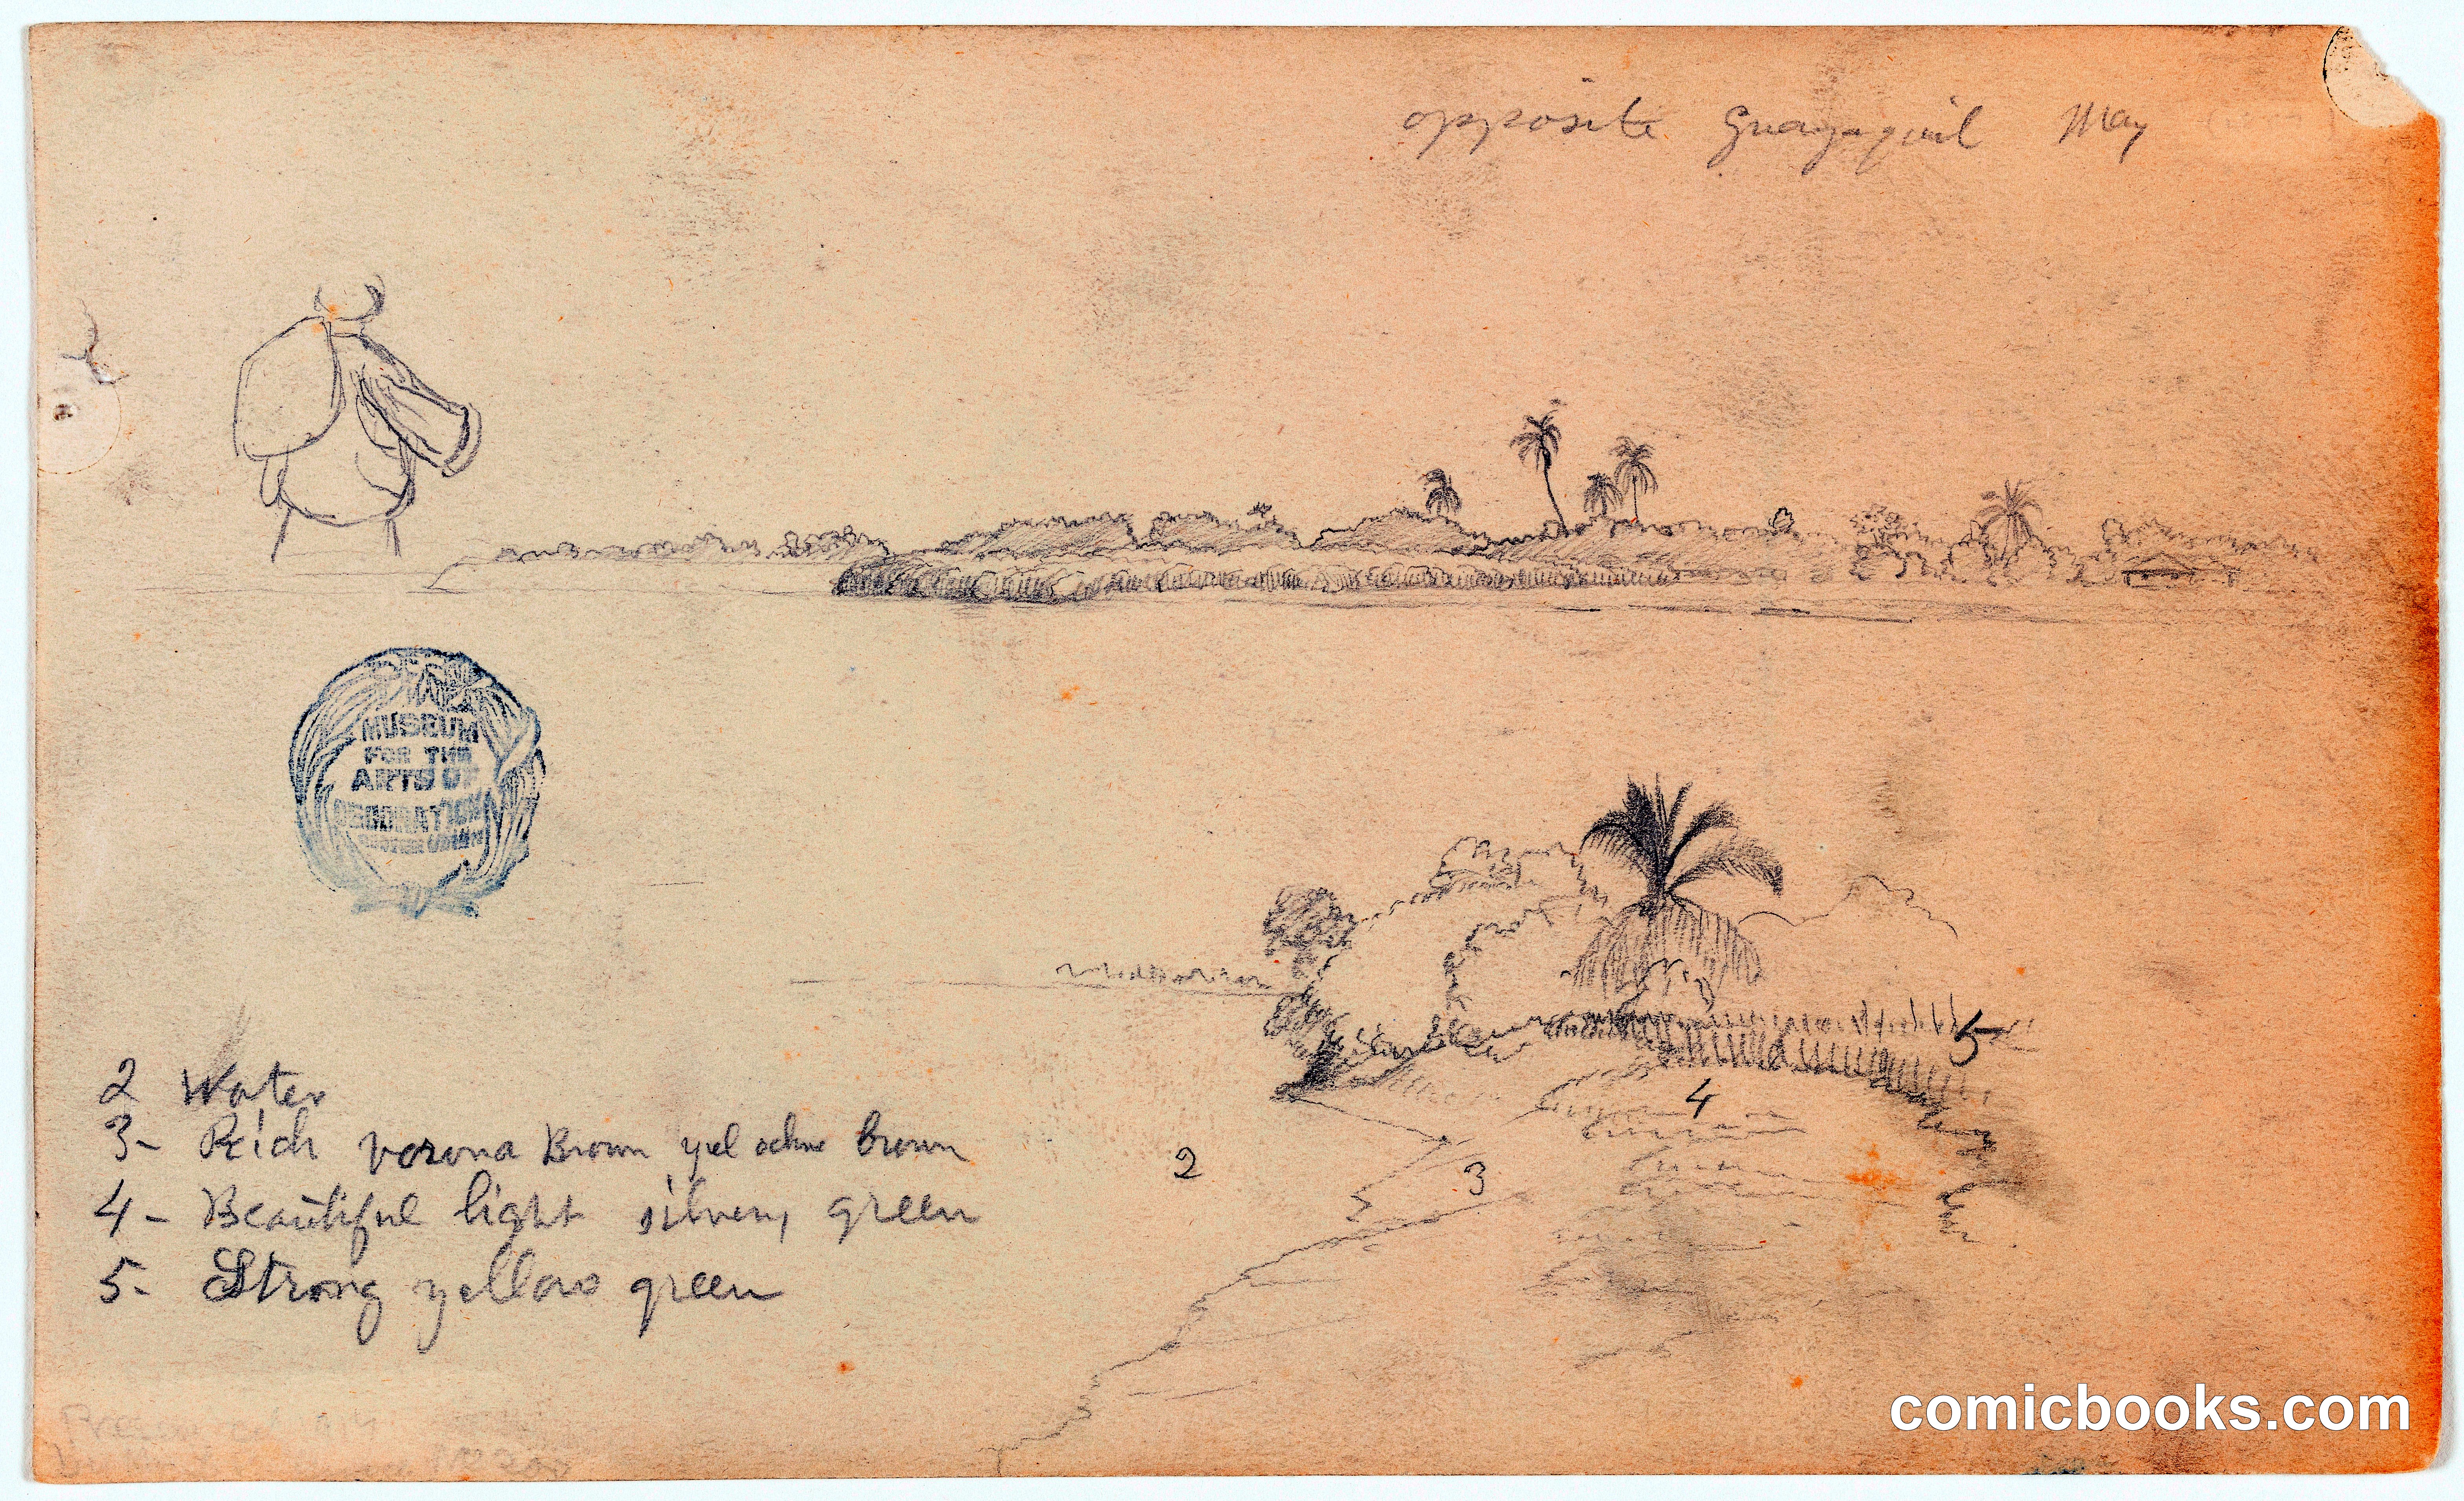 opposite Guayaquil May
MUSEUM
FOR THE
ARTS OF
DECORATION
COOPER UNION
5
4
2
3
2 Water
3- Reich verona Brown yel ochre brown
4- Beautiful light silvery green
5- Strong yellow green
comicbooks.com